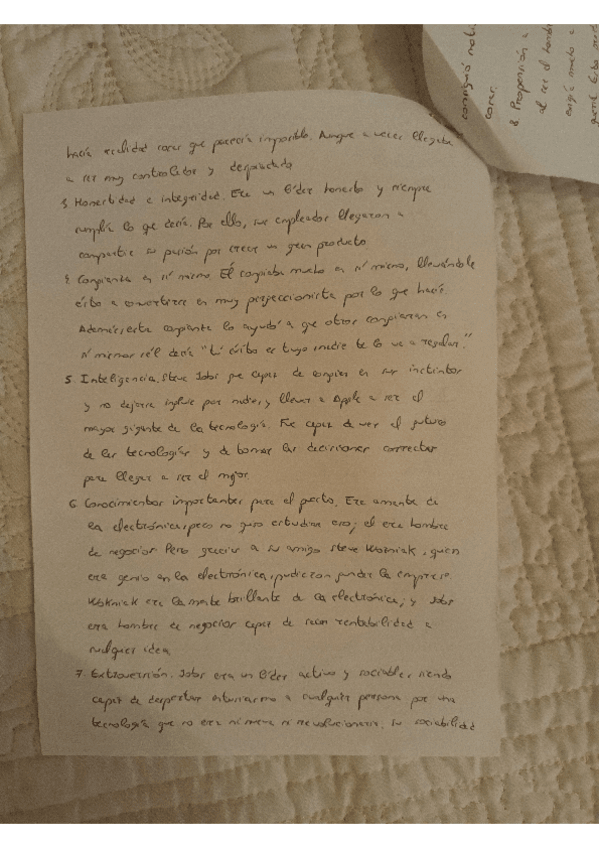 hacía realidad cosas que parecía imposible. Aunque a veces llegaba
a ser muy controlador y despiadado
3. Honestidad e integridad. Era un líder honesto y siempre
cumplía lo que decía. Por ello, sus empleados llegaron a
compartir su pasión por crear un gran producto.
4. Confianza en sí mismo. Él confiaba mucho en sí mismo, llevándole
ésto a convertirse en muy perfeccionista por lo que hacía.
Además, esta confianza lo ayudó a que otros confiaran en
sí mismos, él decía "tú éxito es tuyo, nadie te lo va a regalar."
5. Inteligencia. Steve Jobs fue capaz de confiar en sus instintos
y no dejarse influir por nadie, y llevar a Apple a ser el
mayor gigante de la tecnología. Fue capaz de ver el futuro
de las tecnologías y de tomar las decisiones correctas
para llegar a ser el mejor.
6. Conocimientos importantes para el puesto. Era amante de
la electrónica, pero no quiso estudiar eso; él era hombre
de negocios. Pero gracias a su amigo Steve Wozniak, quien
era genio en la electrónica, pudieron fundar la empresa.
Wozniak era la mente brillante de la electrónica, y Jobs
era hombre de negocios capaz de sacar rentabilidad a
cualquier idea.
7. Extroversión. Jobs era un líder activo y sociable, siendo
capaz de despertar entusiasmo a cualquier persona por una
tecnología que no era ni nueva ni revolucionaria. Su sociabilidad
consiguió moti
correr.
8. Propensión a
al ser el hombre
exigía mucho a